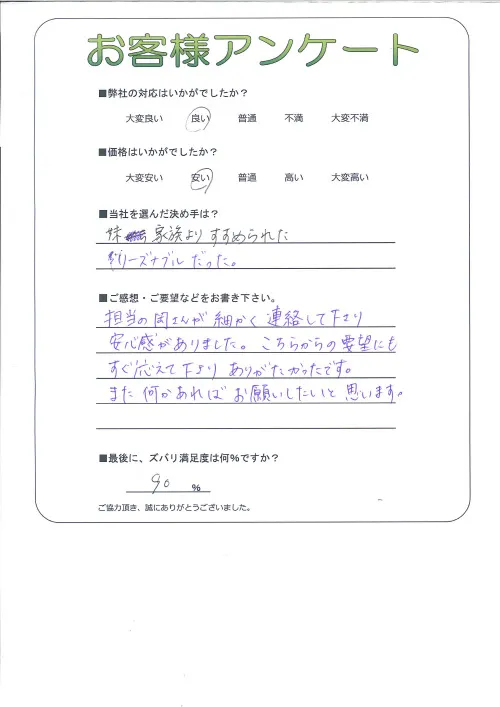 お客様アンケート
■弊社の対応はいかがでしたか？
大変良い 良い 普通 不満 大変不満
■価格はいかがでしたか？
大変安い 安い 普通 高い 大変高い
■当社を選んだ決め手は？
妹 家族よりすすめられた
リーズナブルだった。
■ご感想・ご要望などをお書き下さい。
担当の岡さんが細かく連絡して下さり
安心感がありました。こちらからの要望にも
すぐ応えて下さり ありがたかったです。
また何かあればお願いしたいと思います。
■最後に、ズバリ満足度は何％ですか？
90 %
ご協力頂き、誠にありがとうございました。